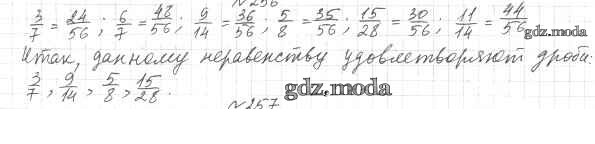 №256
3/7 = 24/56; 6/7 = 48/56; 9/14 = 36/56; 5/8 = 35/56; 15/28 = 30/56; 11/14 = 44/56
gdz.moda
Итак, данному неравенству удовлетворяют дроби:
3/7, 9/14, 5/8, 15/28.
gdz.moda
№257